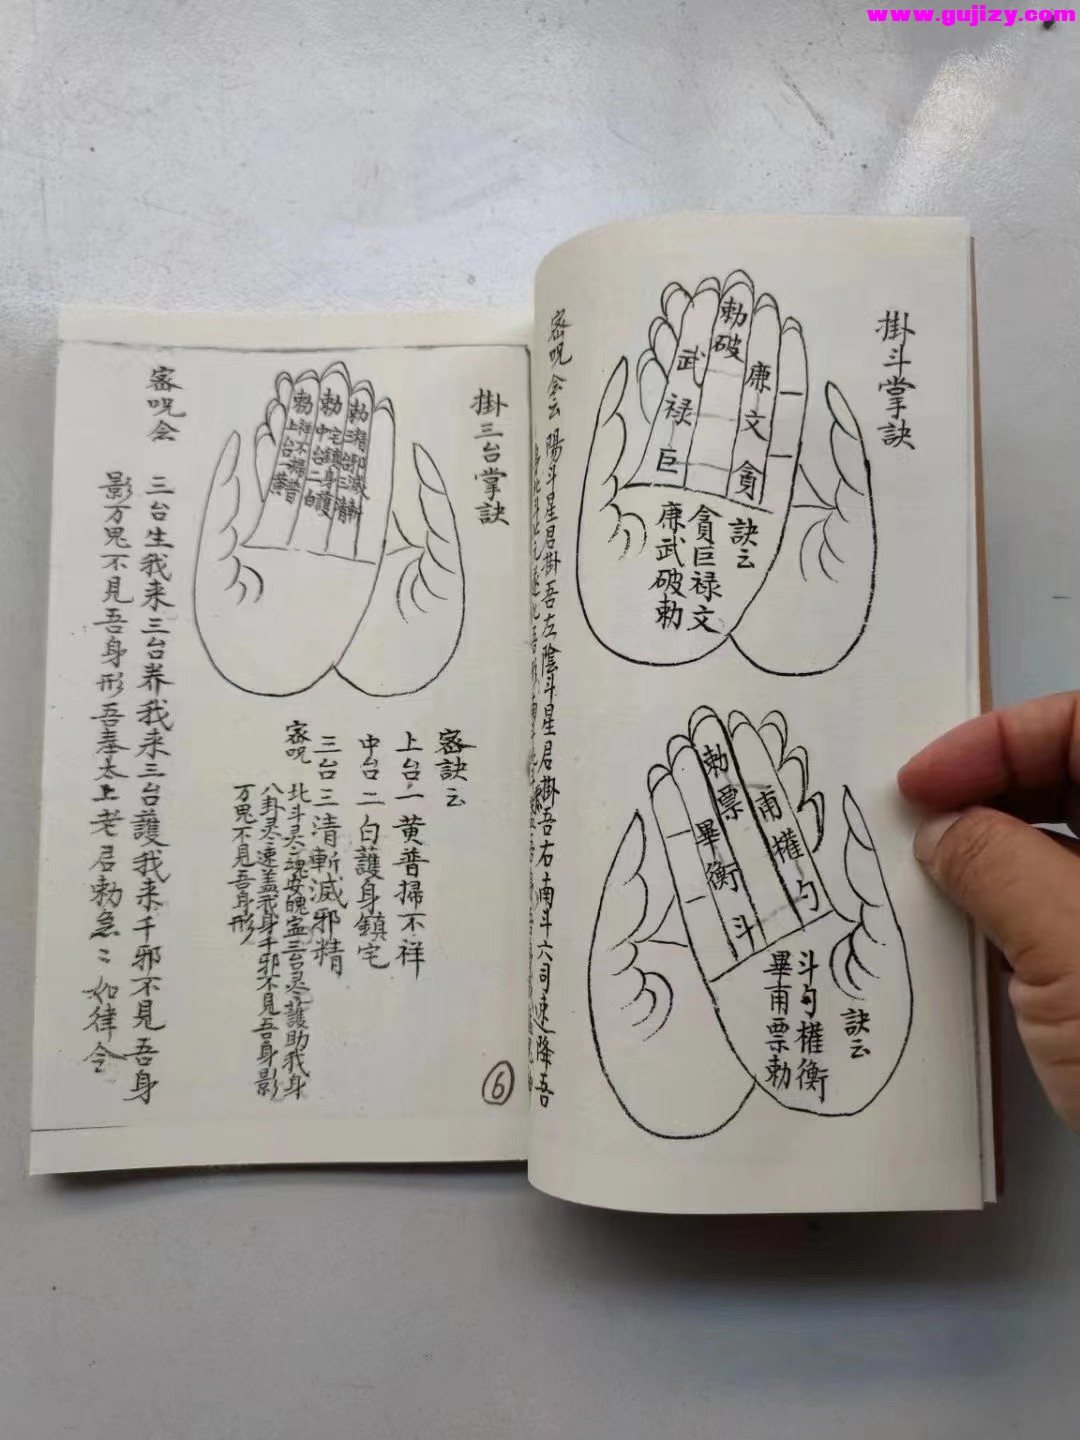 www.gujizy.com
掛斗掌訣
勅破
武
禄
巨
廉
文
貪
訣云
貪巨禄文
廉武破勅
勅票
畢衡斗
甫權勺
訣云
斗勺權衡
畢甫票勅
密呪会云 陽斗星君掛吾左陰斗星君掛吾右南斗六司速降吾
掛三台掌訣
勅上台一黄普掃不祥
勅中台二白護身鎮宅
勅三台三清斬滅邪精
密訣云
上台一黄普掃不祥
中台二白護身鎮宅
三台三清斬滅邪精
密呪
北斗灵灵魂安魄寍三台灵灵護助我身
八卦灵灵速盖我身千邪不見吾身影
万鬼不見吾身形
密呪会
三台生我来三台养我来三台護我来千邪不見吾身
影万鬼不見吾身形吾奉太上老君勅急〻如律令
6